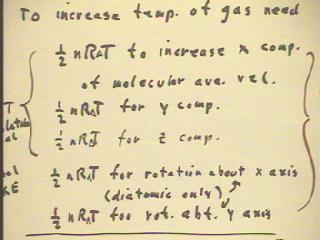 To increase temp. of gas need
½ nRΔT to increase x comp.
of molecular ave. vel.
½ nRΔT for y comp.
½ nRΔT for z comp.
½ nRΔT for rotation about x axis
(diatomic only)
½ nRΔT for rot. abt. y axis